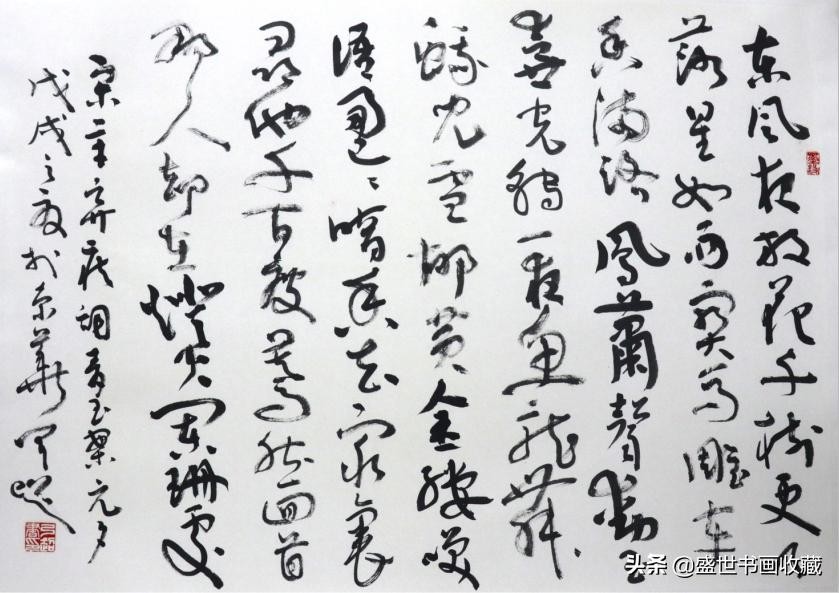 东风夜放花千树更吹
落星如雨宝马雕车
香满路鳳蕭聲動玉
壶光转一夜鱼龙舞
蛾儿雪柳黄金缕笑
语盈盈暗香去众里
寻他千百度蓦然回首
那人却在燈火阑珊处
宋辛弃疾词青玉案元夕
戊戌之夏于京華
头条 @盛世书画收藏